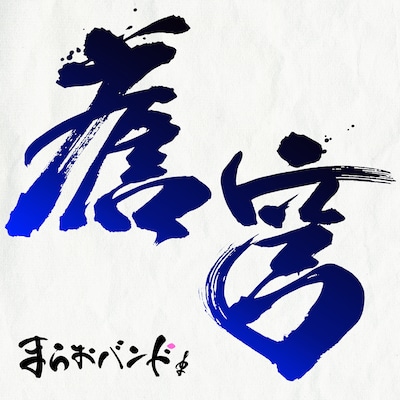 蒼穹
まらおバンド